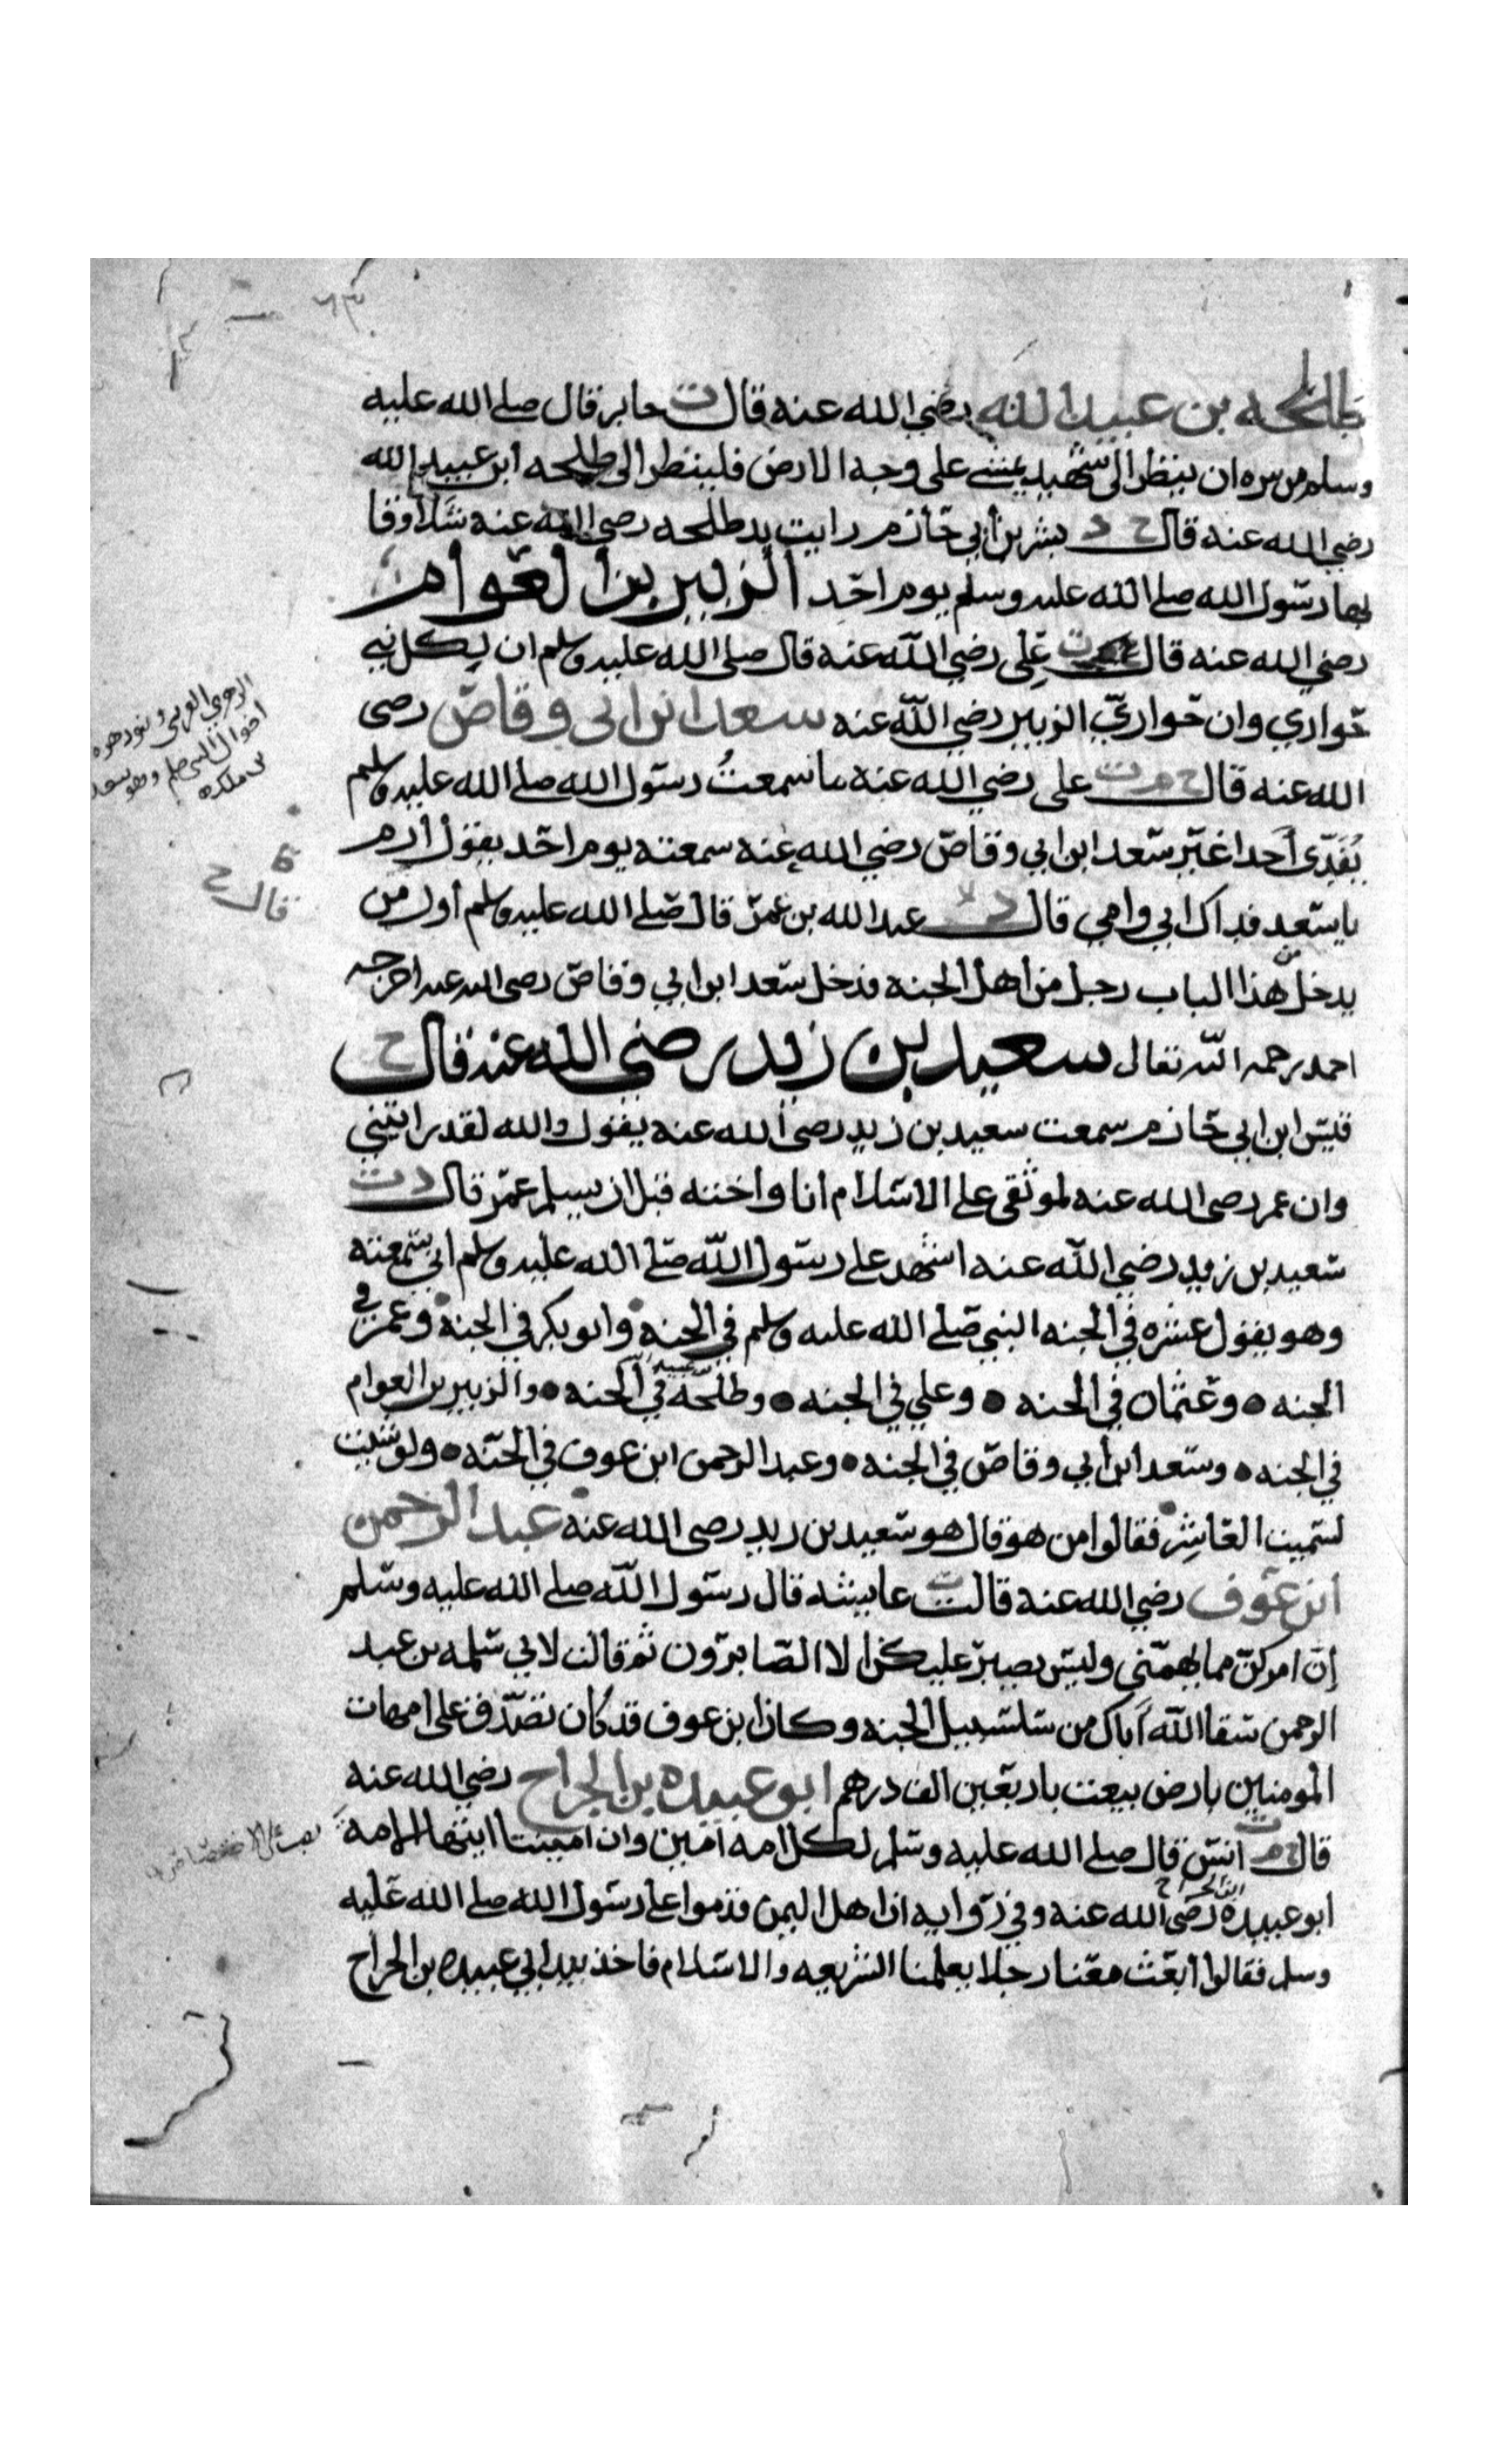 طلحه بن عبيد الله رضي الله عنه قال ت جابر قال صلى الله عليه
وسلم من سره ان ينظر الى شهيد يمشي على وجه الارض فلينظر الى طلحه ابن عبيد الله
رضي الله عنه قال خ د بشر بن أبي حازم رايت يد طلحه رضي الله عنه شلاء وقا
بها رسول الله صلى الله عليه وسلم يوم احد الزبير بن العوام
رضي الله عنه قال ت علي رضي الله عنه قال صلى الله عليه وسلم ان لكل نبي
حواري وان حواريّ الزبير رضي الله عنه سعد ابن ابي وقاص رضى
الله عنه قال خ م ت على رضي الله عنه ما سمعتُ رسول الله صلى الله عليه وسلم
يُفَدّى أحدا غير سعد ابن ابي وقاص رضي الله عنه سمعته يوم احد يقول أرم
يا سعد فداك ابي وامي قال عبد الله بن عمر قال صلى الله عليه وسلم أول من
يدخل من هذا الباب رجل من اهل الجنه فدخل سعد ابن ابي وقاص رضى الله عنه اخرجه
احمد رحمه الله تعالى سعيد بن زيد رضي الله عنه قال خ
قيس ابن ابي حازم سمعت سعيد بن زيد رضى الله عنه يقول والله لقد رايتني
وان عمر رضى الله عنه لموثقى على الاسلام انا واخته قبل ان يسلم عمر قال د ت
سعيد بن زيد رضي الله عنه اشهد على رسول الله صلى الله عليه وسلم اني سمعته
وهو يقول عشره في الجنه النبي صلى الله عليه وسلم في الجنه وابو بكر في الجنه وعمر في
الجنه • وعثمان في الجنه • وعلي في الجنه • وطلحه بن عبيد الله في الجنه • والزبير بن العوام
في الجنه • وسعد ابن أبي وقاص في الجنه • وعبد الرحمن ابن عوف في الجنه • ولو شيت
لسميت العاشر فقالوا من هو قال هو سعيد بن زيد رضى الله عنه عبد الرحمن
ابن عوف رضي الله عنه قالت ت عايشه قال رسول الله صلى الله عليه وسلم
إن امركن مما يهمني وليس يصبر عليكن الا الصابرون ثم قالت لابي سلمه بن عبد
الرحمن سقا الله أباك من سلسبيل الجنه وكان ابن عوف قد كان تصدق على امهات
المومنين بارض بيعت باربعين الف درهم ابو عبيده بن الجراح رضي الله عنه
قال خ م ت انس قال صلى الله عليه وسلم لكل امه امين وان اميننا ايتها الامة
ابو عبيده ابن الجراح رضى الله عنه وفي روايه ان اهل اليمن قدموا على رسول الله صلى الله عليه
وسلم فقالوا ابعث معنا رجلا يعلمنا الشريعه والاسلام فاخذ بيد ابي عبيده بن الجراح
قال خ